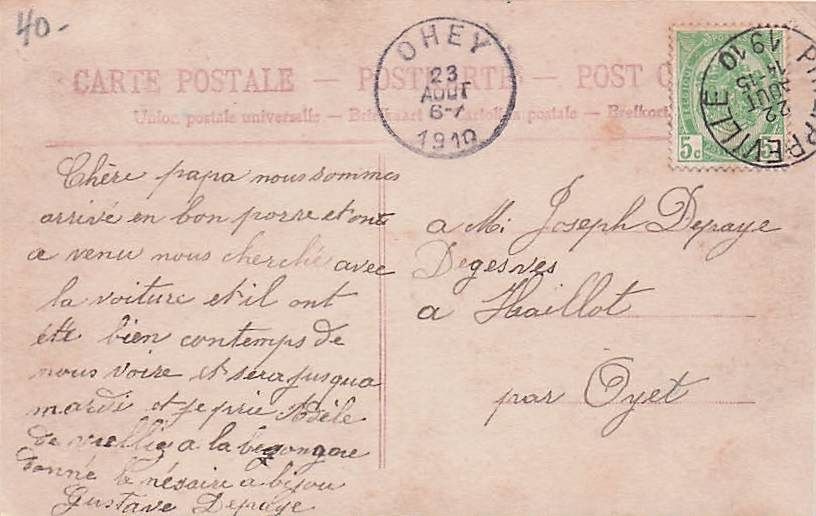 40-
CARTE POSTALE — POSTKARTE — POST C
Union postale universelle — Briefkaart — Cartolina postale — Brefkort
OHEY
23
AOUT
6-7
1910
PHILIPPEVILLE
22
AOUT
14-15
1910
5c 5
Chère papa nous sommes
arrivé en bon porre et ont
a venu nous cherché avec
la voiture et il ont
été bien contemps de
nous voire et sera jusqua
mardi et je prie Adèle
de vellie a la
donné le nésaire a bijou
Gustave Depaye
a Mr Joseph Depaye
Degesves
a Haillot
par Oyet